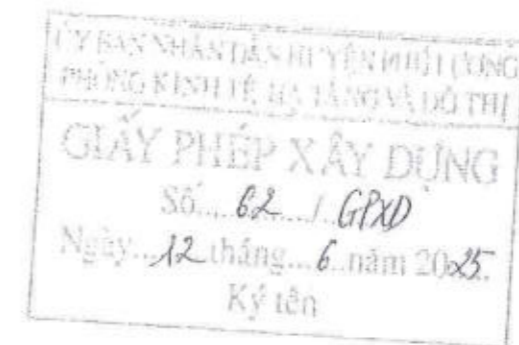 ỦY BAN NHÂN DÂN HUYỆN PHÚ LƯƠNG
PHÒNG KINH TẾ, HẠ TẦNG VÀ ĐÔ THỊ
GIẤY PHÉP XÂY DỰNG
Số.....62...../..GPXD
Ngày...12..tháng...6..năm 2025.
Ký tên